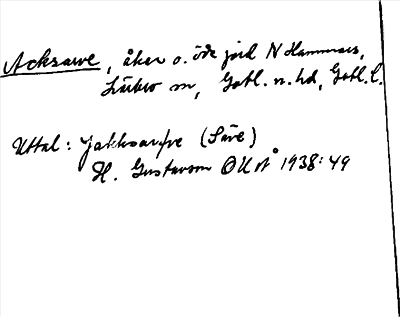 Acksarve, åker o. öde jord N Hammars,
Lärbro sn, Gotl. n. hd, Gotl. l.
Uttal: jakksarfve (Säve)
H. Gustavson OUÅ 1938:49